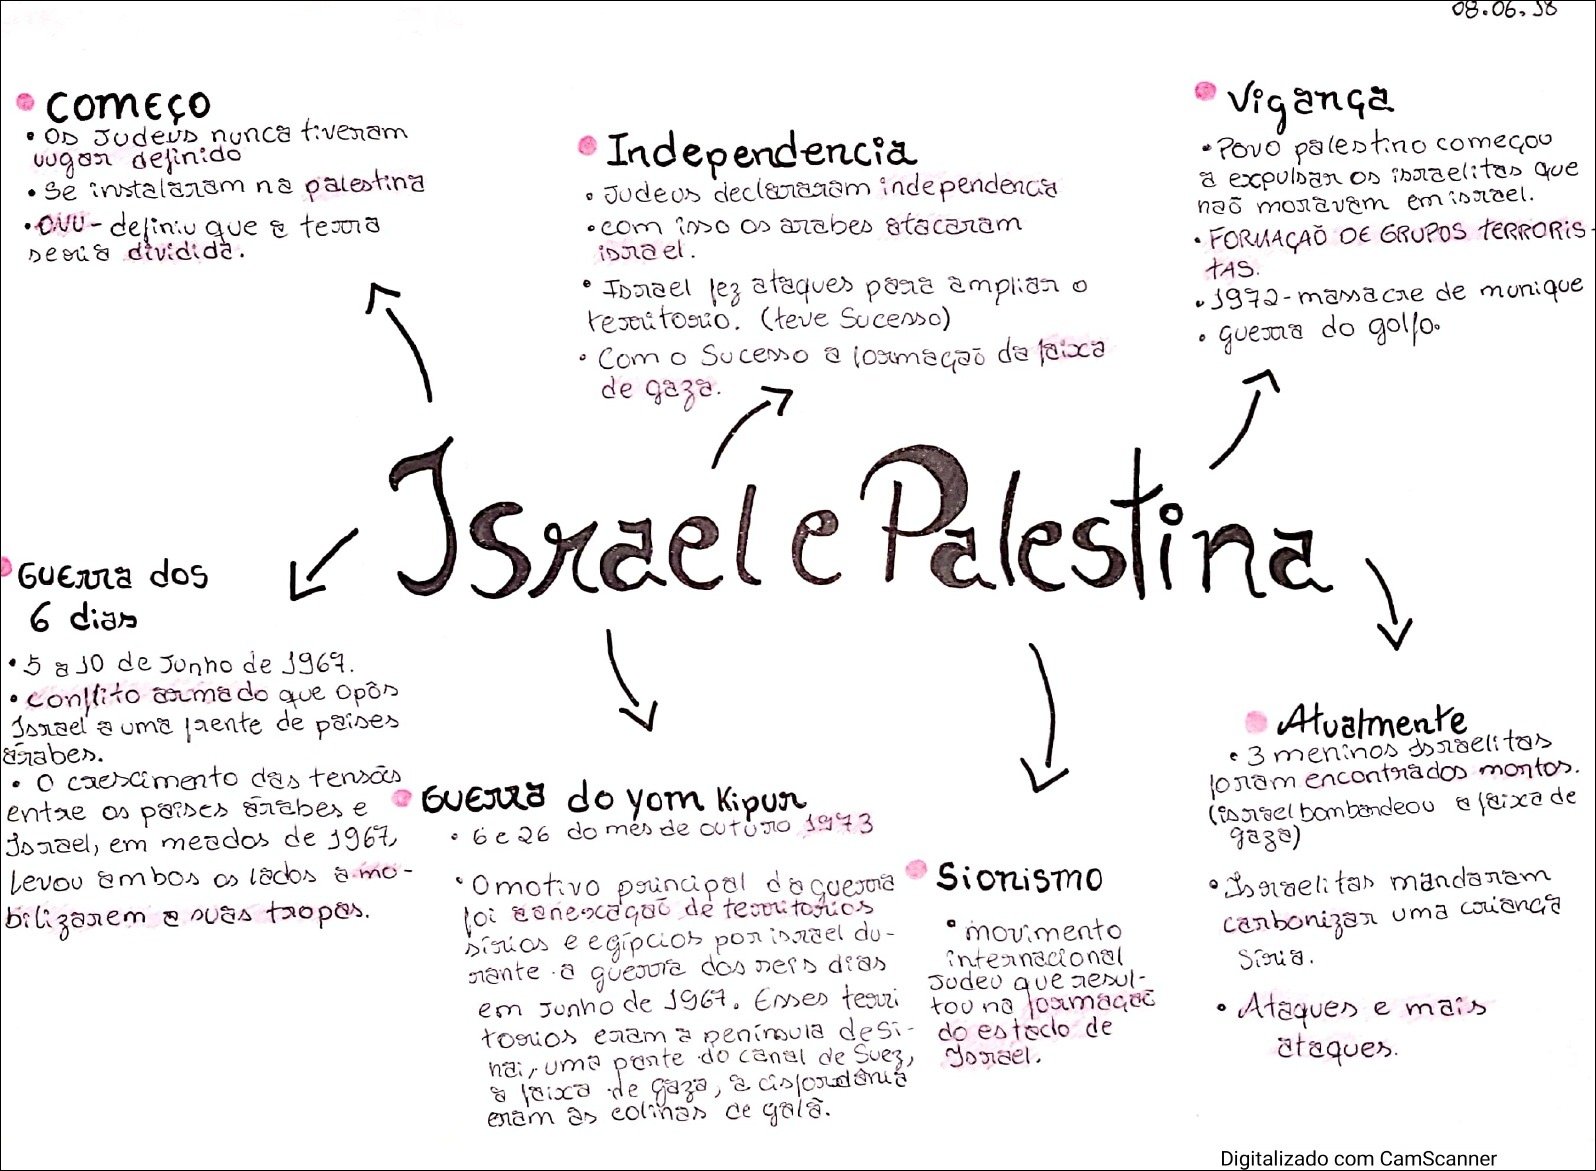 08.06.18
Começo
• Os Judeus nunca tiveram
lugar definido
• Se instalaram na palestina
• ONU - definiu que a terra
seria dividida.
Independencia
• Judeus declararam independencia
• com isso os arabes atacaram
israel.
• Israel fez ataques para ampliar o
territorio. (teve Sucesso)
• Com o Sucesso a formação da faixa
de gaza.
Vigança
• Povo palestino começou
a expulsar os israelitas que
naõ moravam em israel.
• FORMAÇAÕ DE GRUPOS TERRORIS-
TAS.
• 1972 - massacre de munique
• guerra do golfo.
Israel e Palestina
Guerra dos
6 dias
• 5 a 10 de Junho de 1967.
• conflito armado que opôs
Israel a uma frente de países
árabes.
• O crescimento das tensões
entre os países árabes e
Israel, em meados de 1967,
levou ambos os lados a mo-
bilizarem a suas tropas.
Guerra do yom Kipur
• 6 e 26 do mês de outuro 1973
• O motivo principal da guerra
foi a anexaçaõ de territorios
sírios e egípcios por israel du-
rante a guerra dos seis dias
em Junho de 1967. Esses terri
torios eram a península de Si-
nai, uma parte do canal de Suez,
a faixa de gaza, a cisjordânia
eram as colinas de golã.
Sionismo
• movimento
internacional
Judeu que resul-
tou na formaçaõ
do estado de
Israel.
Atualmente
• 3 meninos Israelitas
foram encontrados mortos.
(israel bombardeou a faixa de
gaza)
• Israelitas mandaram
carbonizar uma criança
Síria.
• Ataques e mais
ataques.
Digitalizado com CamScanner